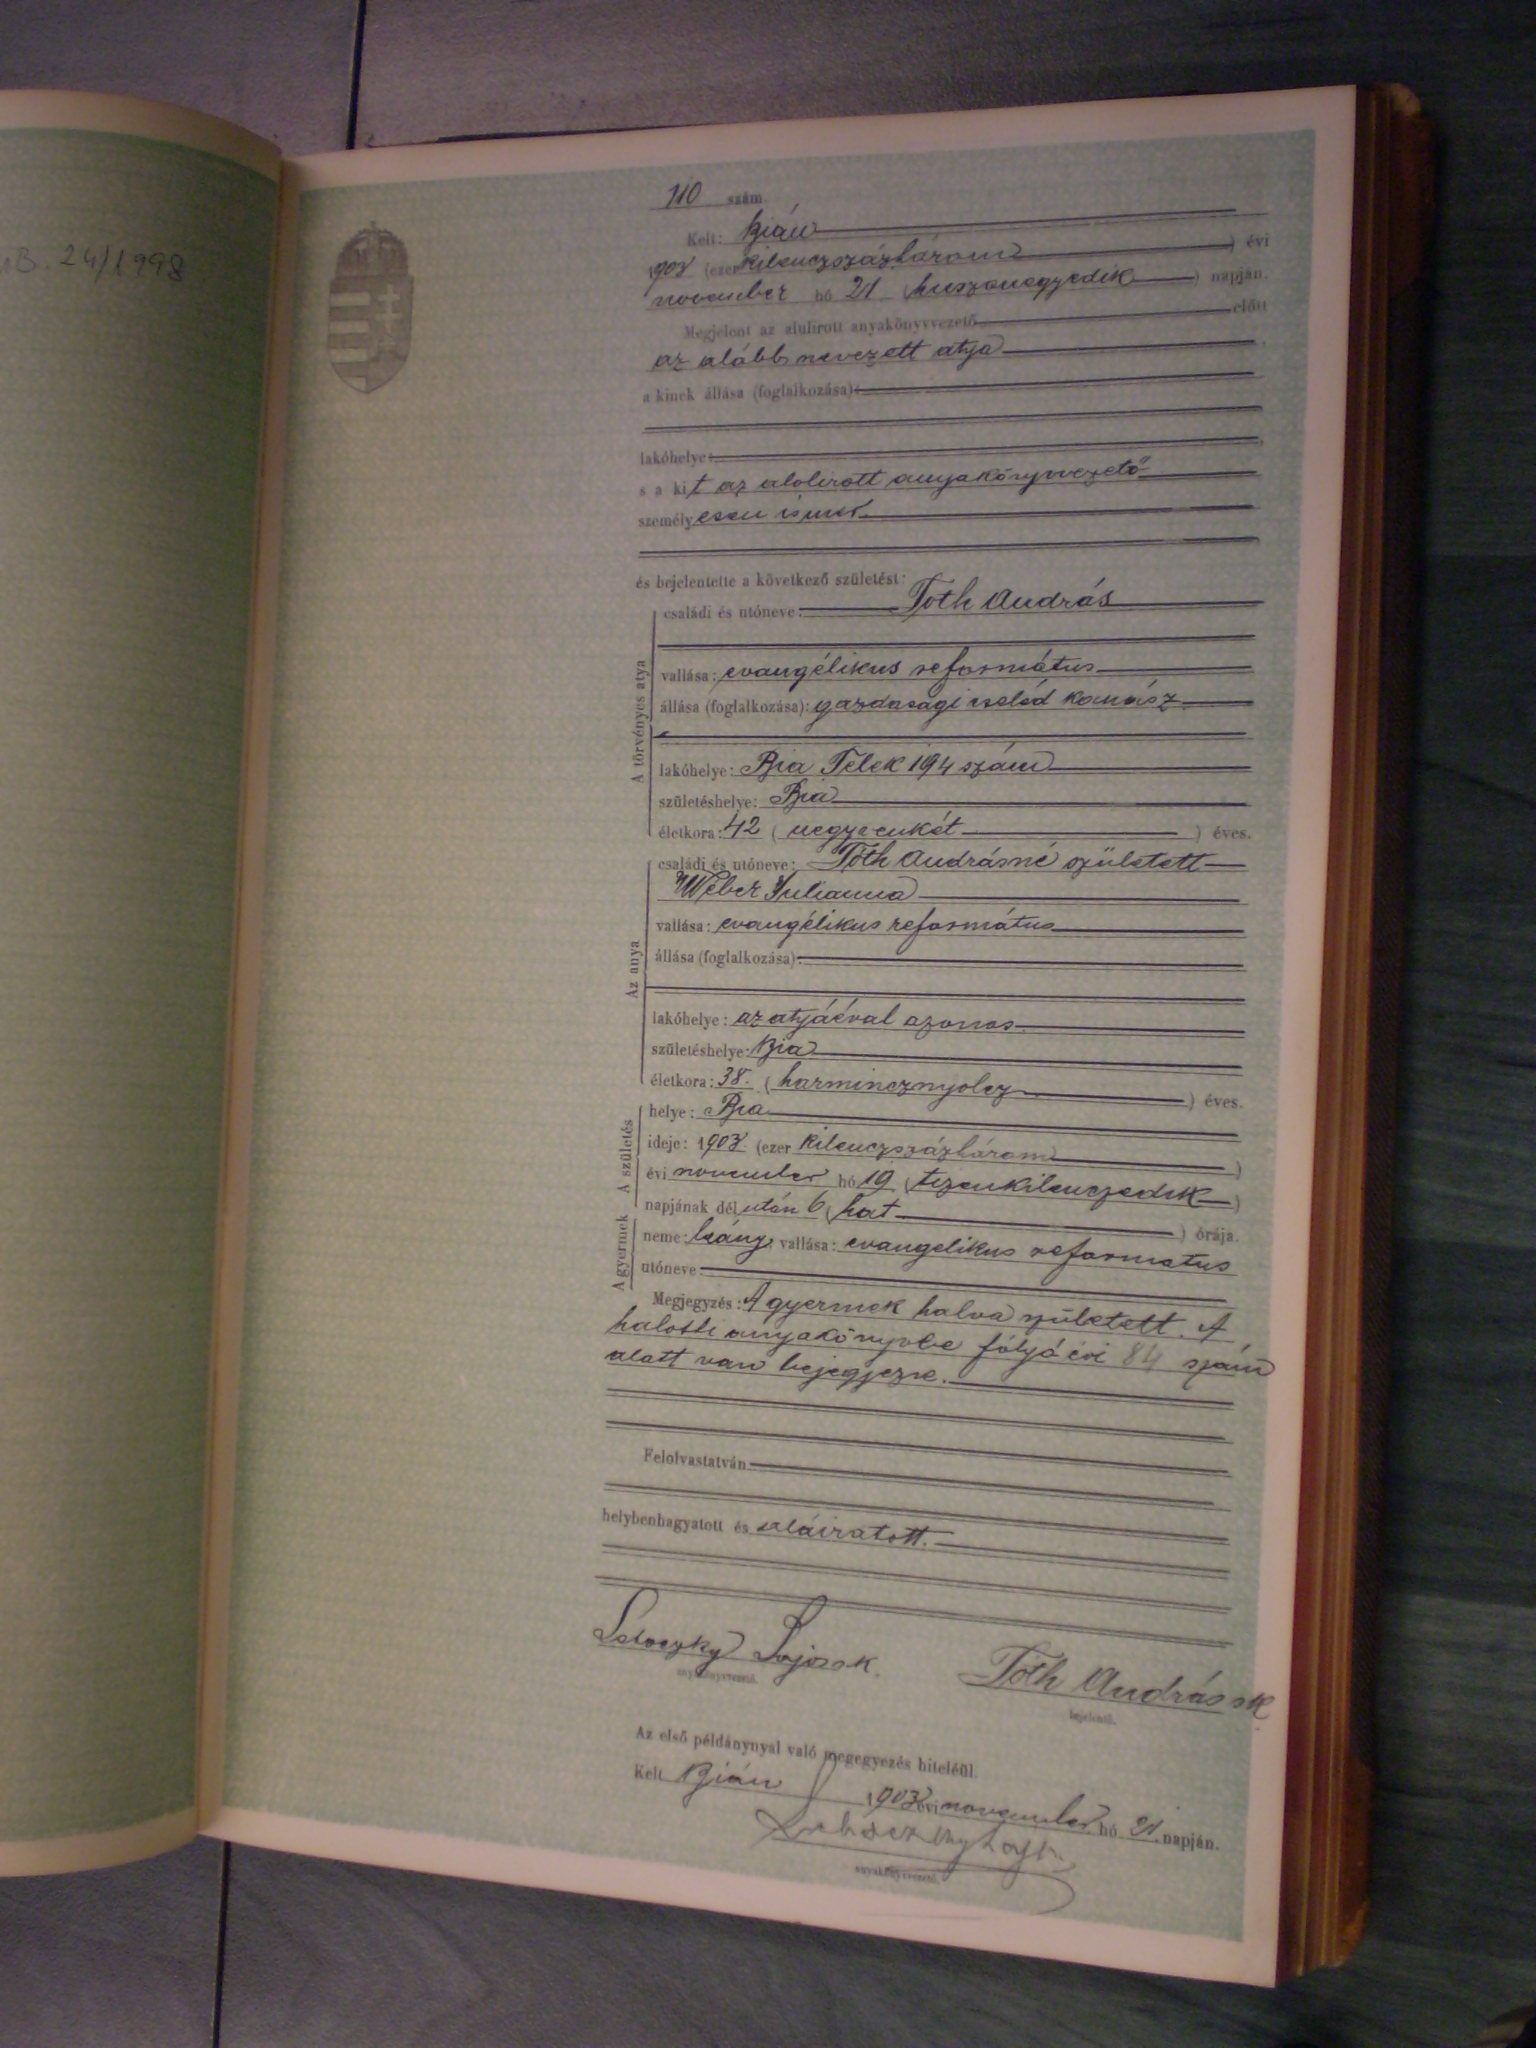 B. 24/1998
110 szám.
Kelt: Bián
1903 (ezer kilenczszázhárom) évi
november hó 21 (huszonegyedik) napján.
Megjelent az alulirott anyakönyvvezető előtt
az alább nevezett atya
a kinek állása (foglalkozása):
lakóhelye:
s a kit az alolirott anyakönyvvezető
személyesen ismer.
és bejelentette a következő születést:
A törvényes atya
családi és utóneve: Tóth András
vallása: evangélikus református
állása (foglalkozása): gazdasági cseléd kanász
lakóhelye: Bia Telek 194 szám
születéshelye: Bia
életkora: 42 (negyvenkét) éves.
Az anya
családi és utóneve: Tóth Andrásné született
Weber Julianna
vallása: evangélikus református
állása (foglalkozása):
lakóhelye: az atyáéval azonos
születéshelye: Bia
életkora: 38. (harmincznyolcz) éves.
A születés
helye: Bia
ideje: 1903. (ezer kilenczszázhárom)
évi november hó 19 (tizenkilenczedik)
napjának délután 6 (hat) órája.
A gyermek
neme: leány, vallása: evangelikus reformatus
utóneve:
Megjegyzés: A gyermek halva született. A
halotti anyakönyvbe folyó évi 84 szám
alatt van bejegyezve.
Felolvastatván
helybenhagyatott és aláiratott.
Lajos sk.
anyakönyvvezető.
Tóth András sk
bejelentő.
Az első példánynyal való megegyezés hiteléül.
Kelt Bián 1903 évi november hó 21. napján.
anyakönyvvezető.